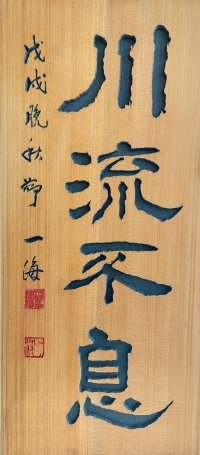 川流不息
戊戌晚秋節 一海